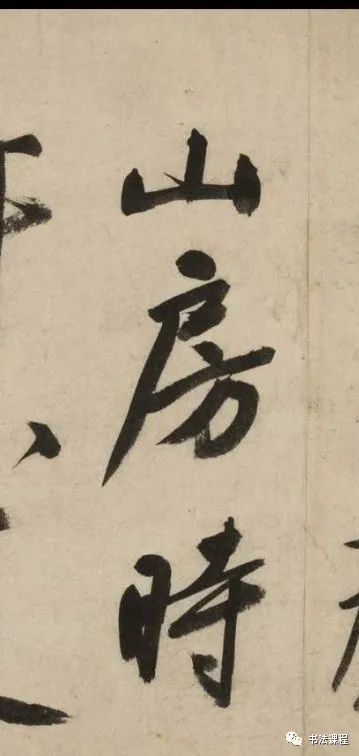 山房時
书法课程